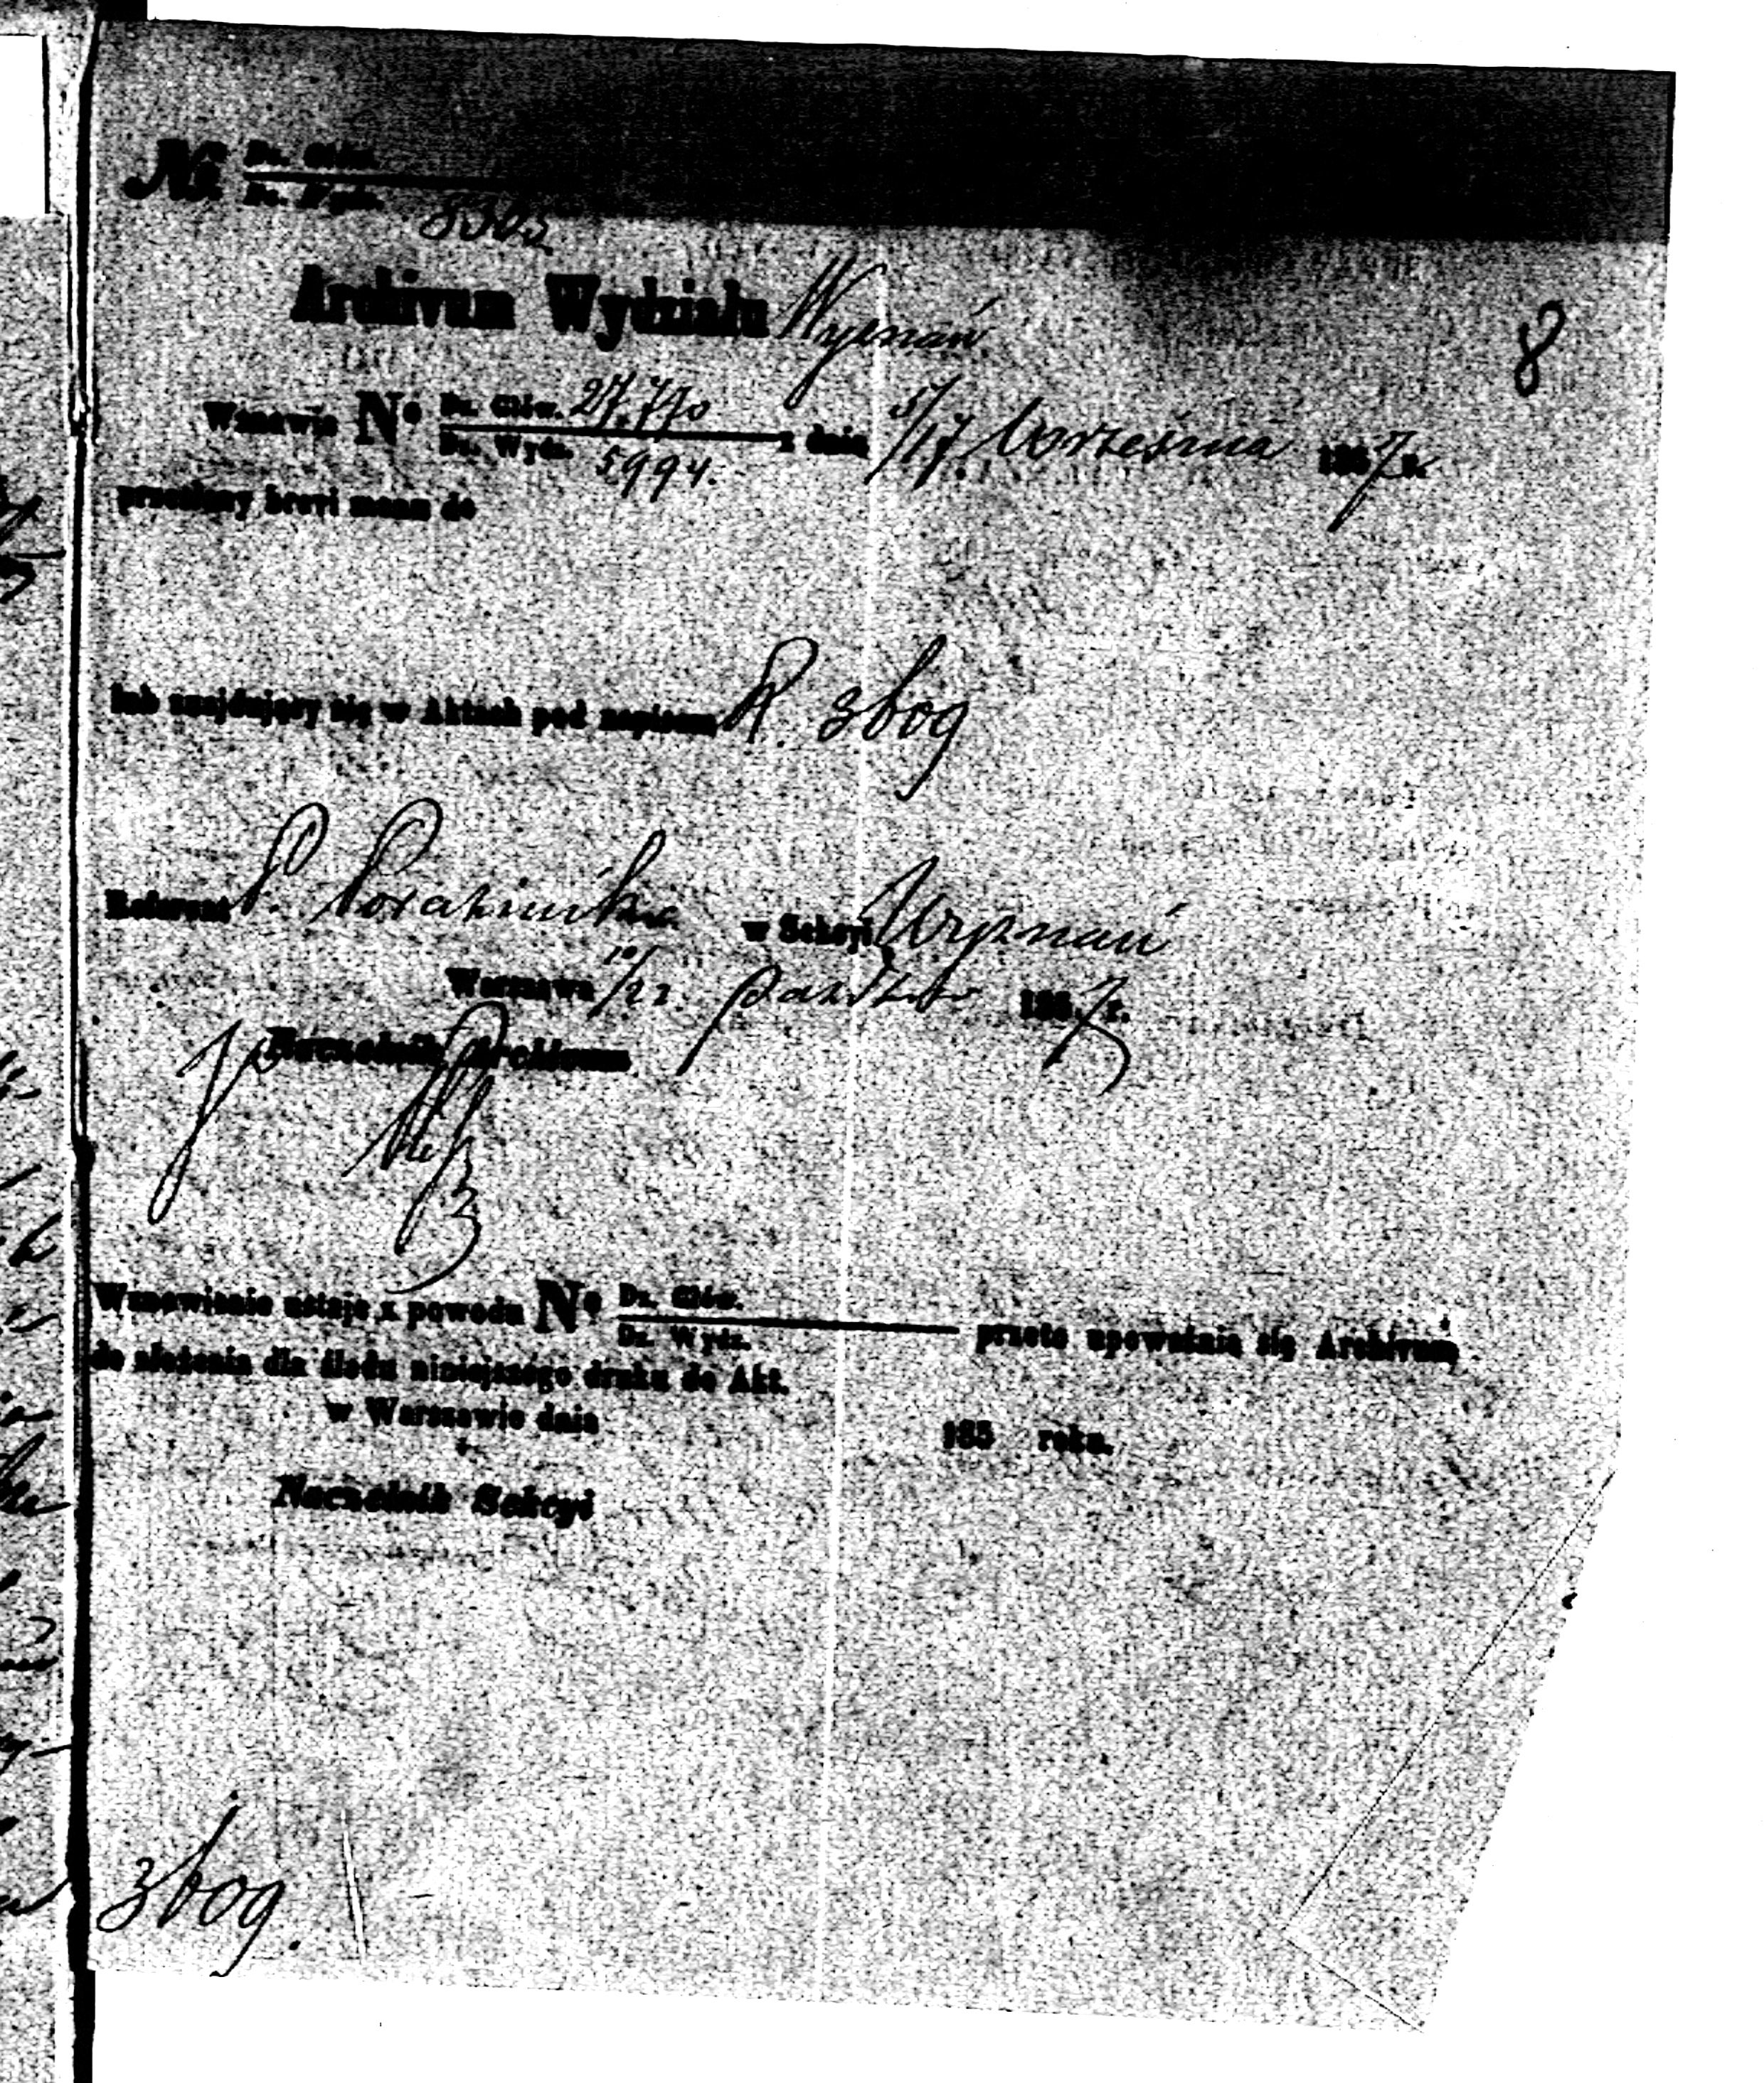 № Dz. Głów.
Dz. Wydz. 8302
Archivum Wydziału Wyznań
8
Wznawia № Dz. Głów. 27.770
Dz. Wydz. 5994. z dnia 5/17 Września 1857 r.
przesłany brevi manu do
lub znajdujący się w Aktach pod napisem R. 3609
Referent P. w Sekcyi Wyznań
Warszawa 10/22 Paździer 1857 r.
Naczelnik Archivum
Wznowienie ustaje z powodu № Dz. Głów.
Dz. Wydz. przeto upoważnia się Archivum
do złożenia dla śladu niniejszego druku do Akt.
w Warszawie dnia 185 roku.
Naczelnik Sekcyi
3609.